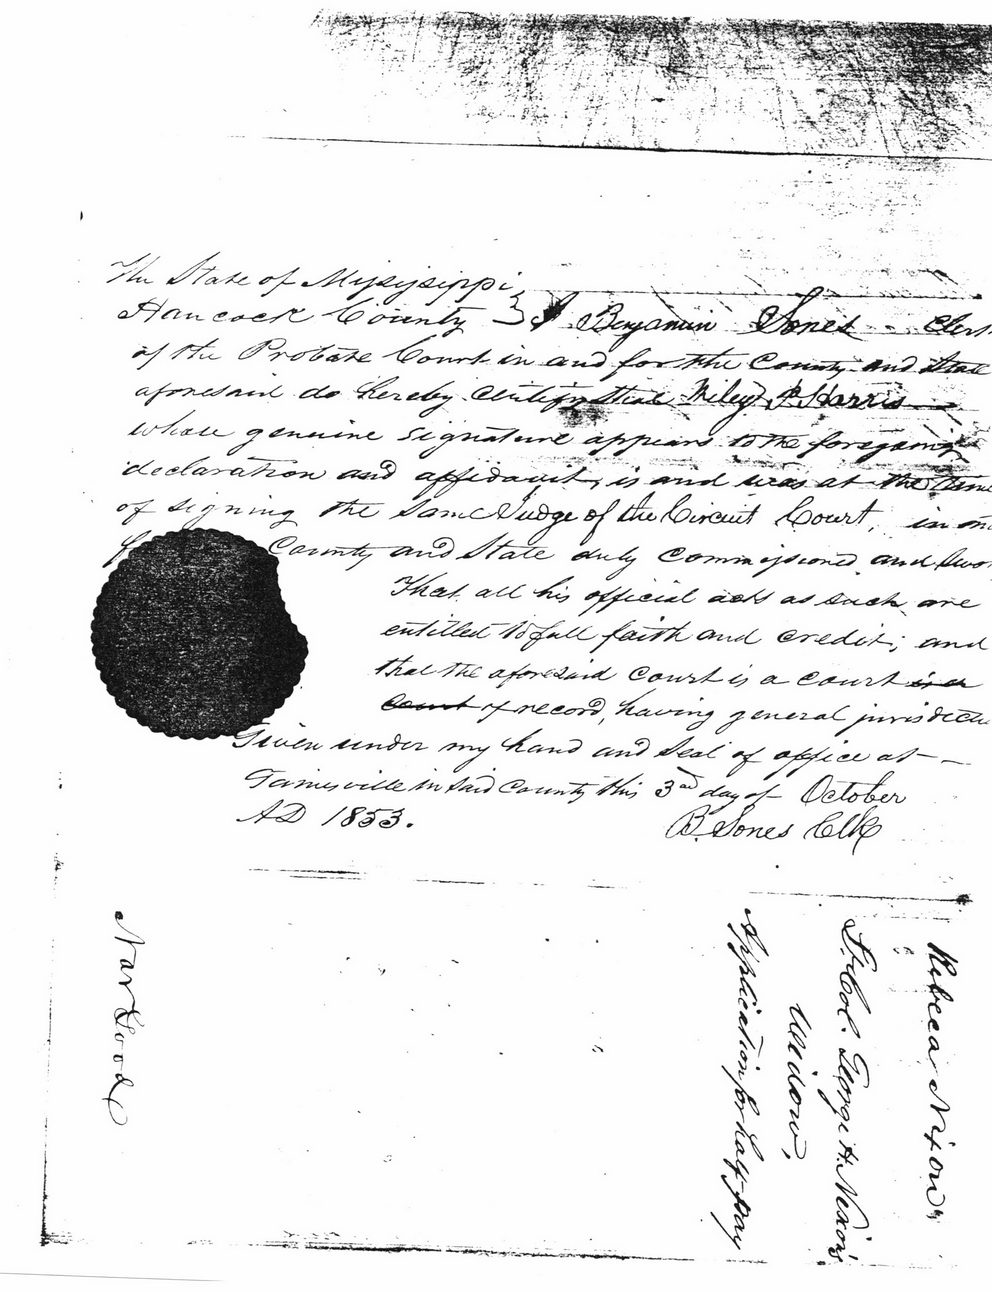 The State of Mississippi
Hancock County } I Benjamin Sones Clerk
of the Probate Court in and for the County and State
aforesaid do hereby certify that Wiley P. Harris
whose genuine signature appears to the foregoing
declaration and affidavit, is and was at the time
of signing the same Judge of the Circuit Court, in and
County and State duly commissioned and swor
That all his official acts as such are
entitled to full faith and credit; and
that the aforesaid court is a court is a
court of record, having general jurisdictio
Given under my hand and seal of office at
Gainesville in said County this 3rd day of October
AD 1853.
B. Sones Clk
Rebecca Nixon
Lt. Col. George H. Nixon's
Widow,
Application for half-pay